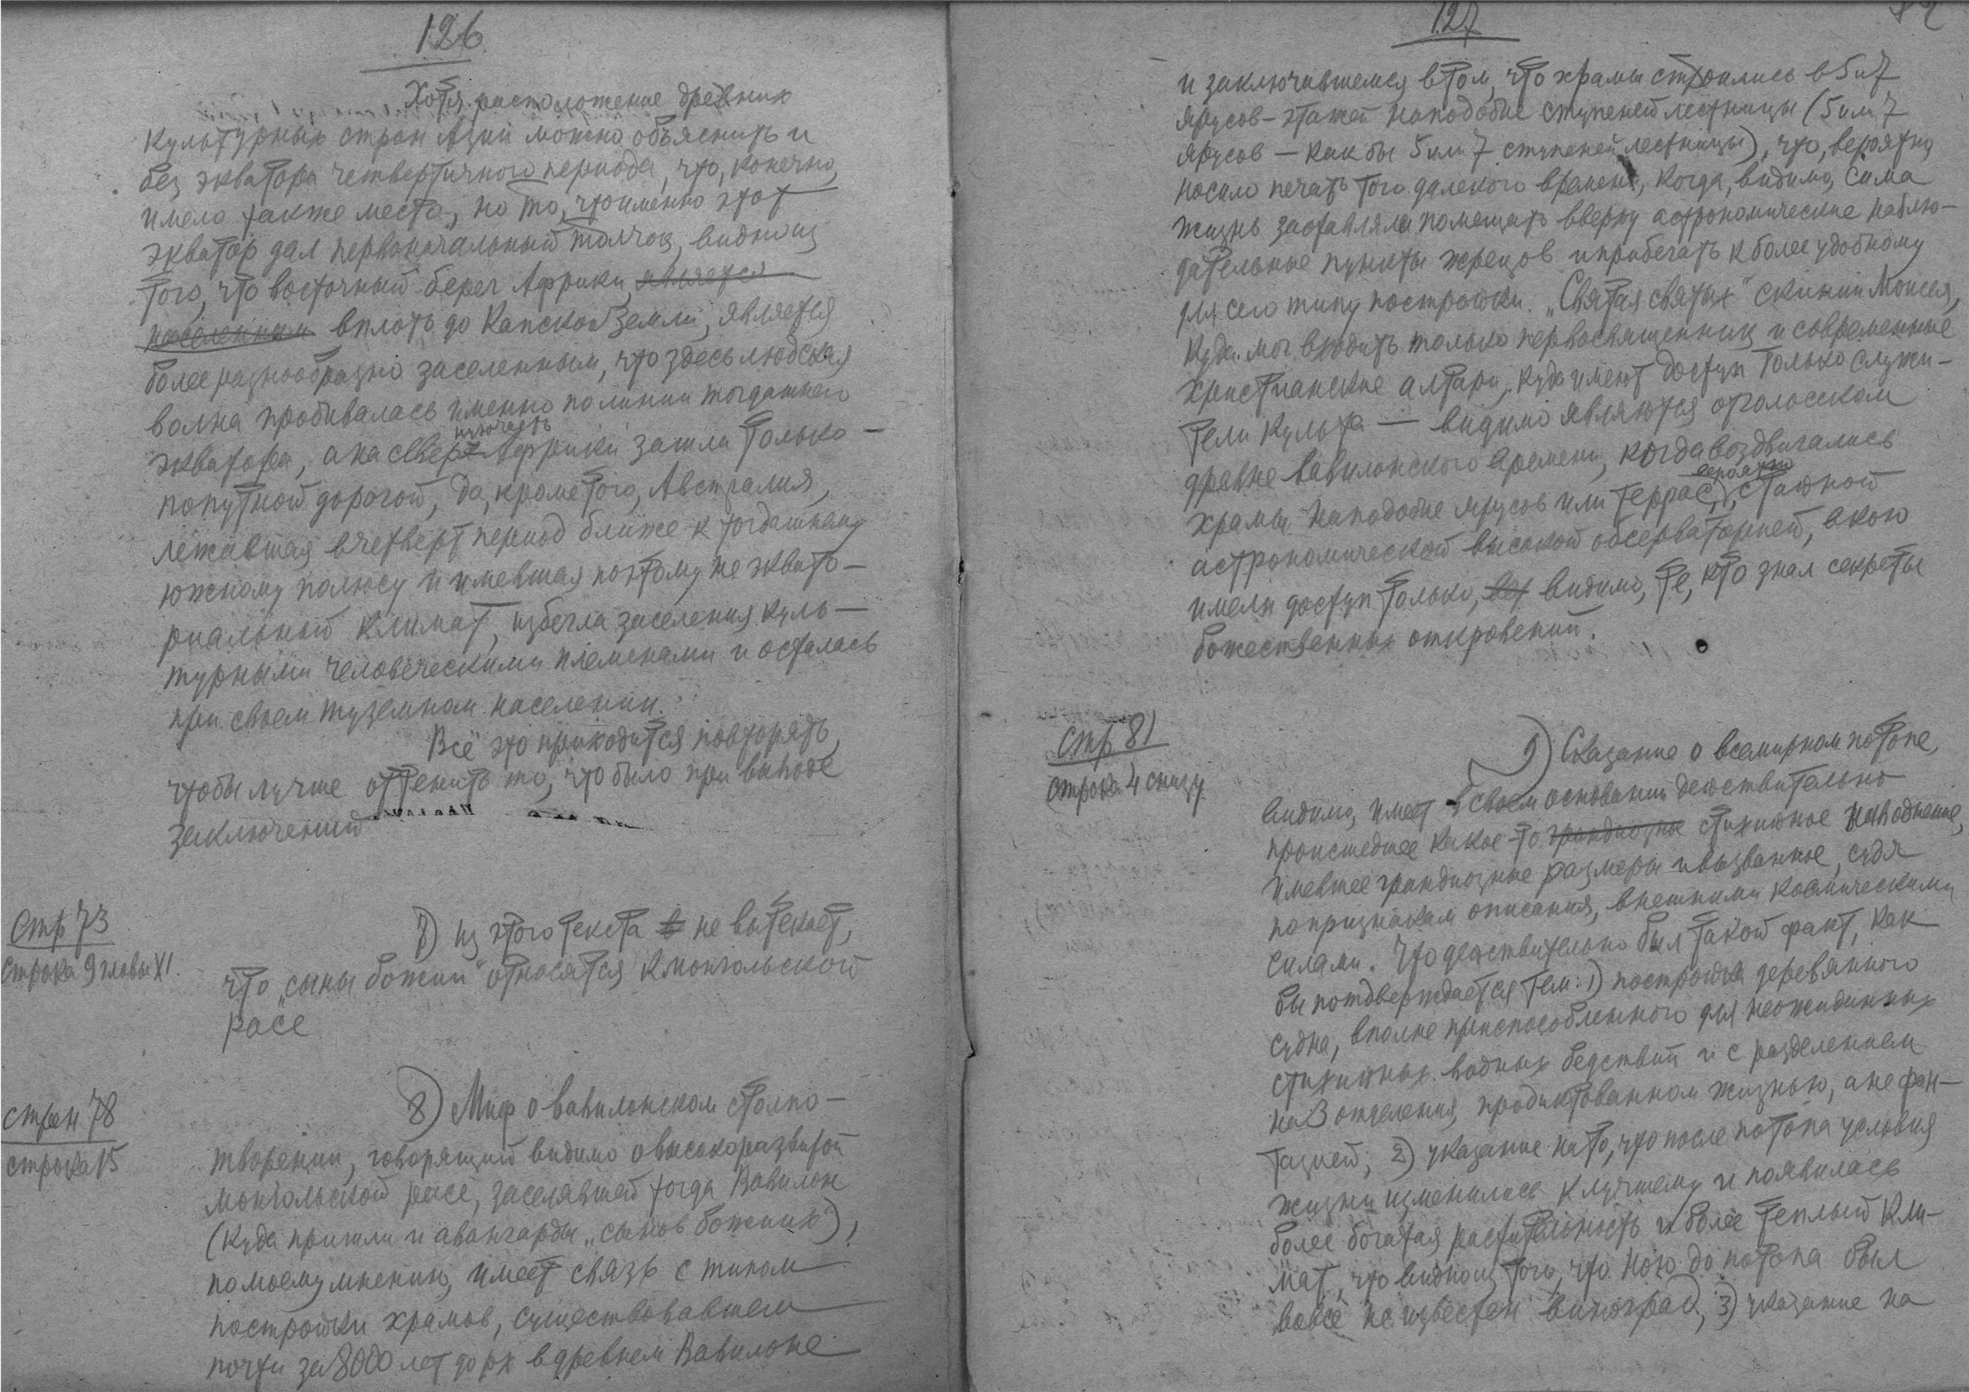 126
Хотя расположение древних
культурных стран Азии можно объяснить и
без экватора четвертичного периода, что, конечно,
имело также место, но то, что именно этот
экватор дал первоначальный толчок, видно из
того, что восточный берег Африки является
населенным вплоть до Капской Земли, является
более разнообразно заселенным, что здесь людская
волна пробивалась именно по линии тогдашнего
экватора, а на север Африки зашла только
попутной дорогой, да, кроме того, Австралия,
лежавшая в четверт период ближе к тогдашнему
южному полюсу и имевшая поэтому не эквато-
риальный климат, избегла заселения куль-
турными человеческими племенами и осталась
при своем туземном населении.
Всё это приходится повторять,
чтобы лучше оттенить то, что было при выводе
заключений
Стр 73
строка 9 главы XI.
7) из этого текста не вытекает,
что „сыны божии" относятся к монгольской
расе
стран 78
строка 15
8) Миф о вавилонском столпо-
творении, говорящий видимо о высокоразвитой
монгольской расе, заселявшей тогда Вавилон
(куда пришли и авангарды „сынов божиих"),
по моему мнению, имеет связь с типом
постройки храмов, существовавшем
почти за 8000 лет до рх в древнем Вавилоне
127
и заключавшемся в том, что храмы строились в 5 и 7
ярусов-этажей наподобие ступеней лестницы (5 или 7
ярусов — как бы 5 или 7 ступеней лестницы), что, вероятно,
носило печать того далекого времени, когда, видимо, сама
жизнь заставляла помещать вверху астрономические наблю-
дательные пункты жрецов и прибегать к более удобному
для сего типу постройки. „Святая святых" скинии Моисея,
куда мог входить только первосвященник и современные
христианские алтари, куда имеют доступ только служи-
тели культа — видимо являются отголоском
древне вавилонского времени, когда воздвигались
вероятно
храмы наподобие ярусов или террас, с тайной
астрономической высокой обсерваторией, в кою
имели доступ только, видимо, те, кто знал секреты
божественных откровений.
Стр 81
строка 4 снизу
9) Сказание о всемирном потопе,
видимо, имеет в своем основании действительно
происшедшее какое-то грандиозное стихийное наводнение,
имевшее грандиозные размеры и вызванное, судя
по признакам описания, внешними космическими
силами. Что действительно был такой факт, как
бы подтверждается тем: 1) постройка деревянного
судна, вполне приспособленного для неожиданных
стихийных водных бедствий и с разделением
на 3 отделения, продиктованном жизнью, а не фан-
тазией, 2) указание на то, что после потопа условия
жизни изменились к лучшему и появилась
более богатая растительность и более теплый кли-
мат, что видно из того, что Ною до потопа был
вовсе не известен виноград, 3) указание на